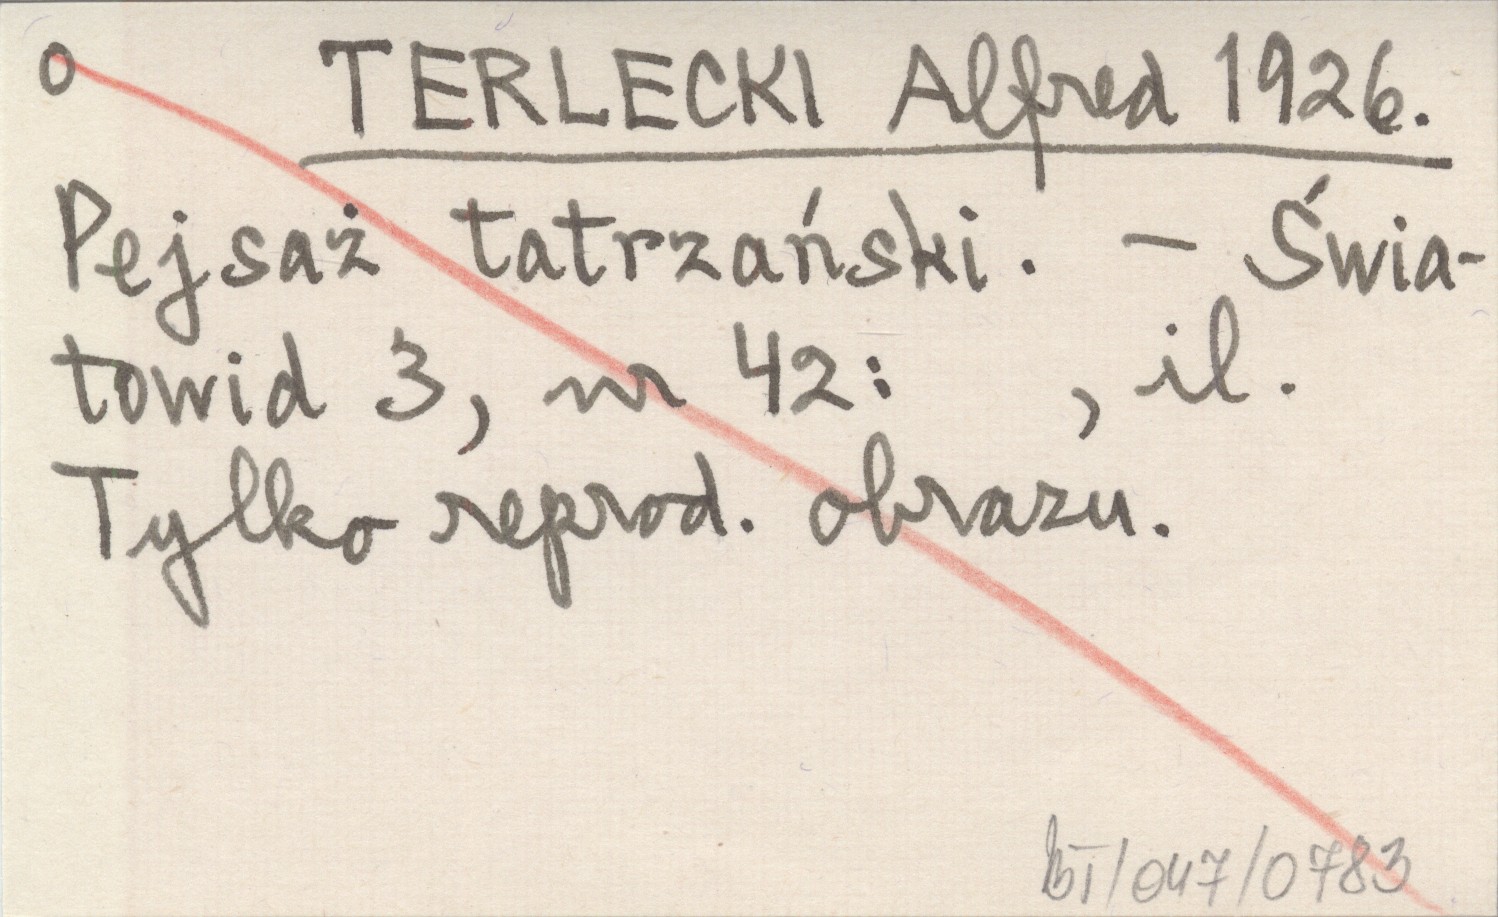 o TERLECKI Alfred 1926.
Pejsaż tatrzański. – Świa-
towid 3, nr 42: , il.
Tylko reprod. obrazu.
BT/047/0783